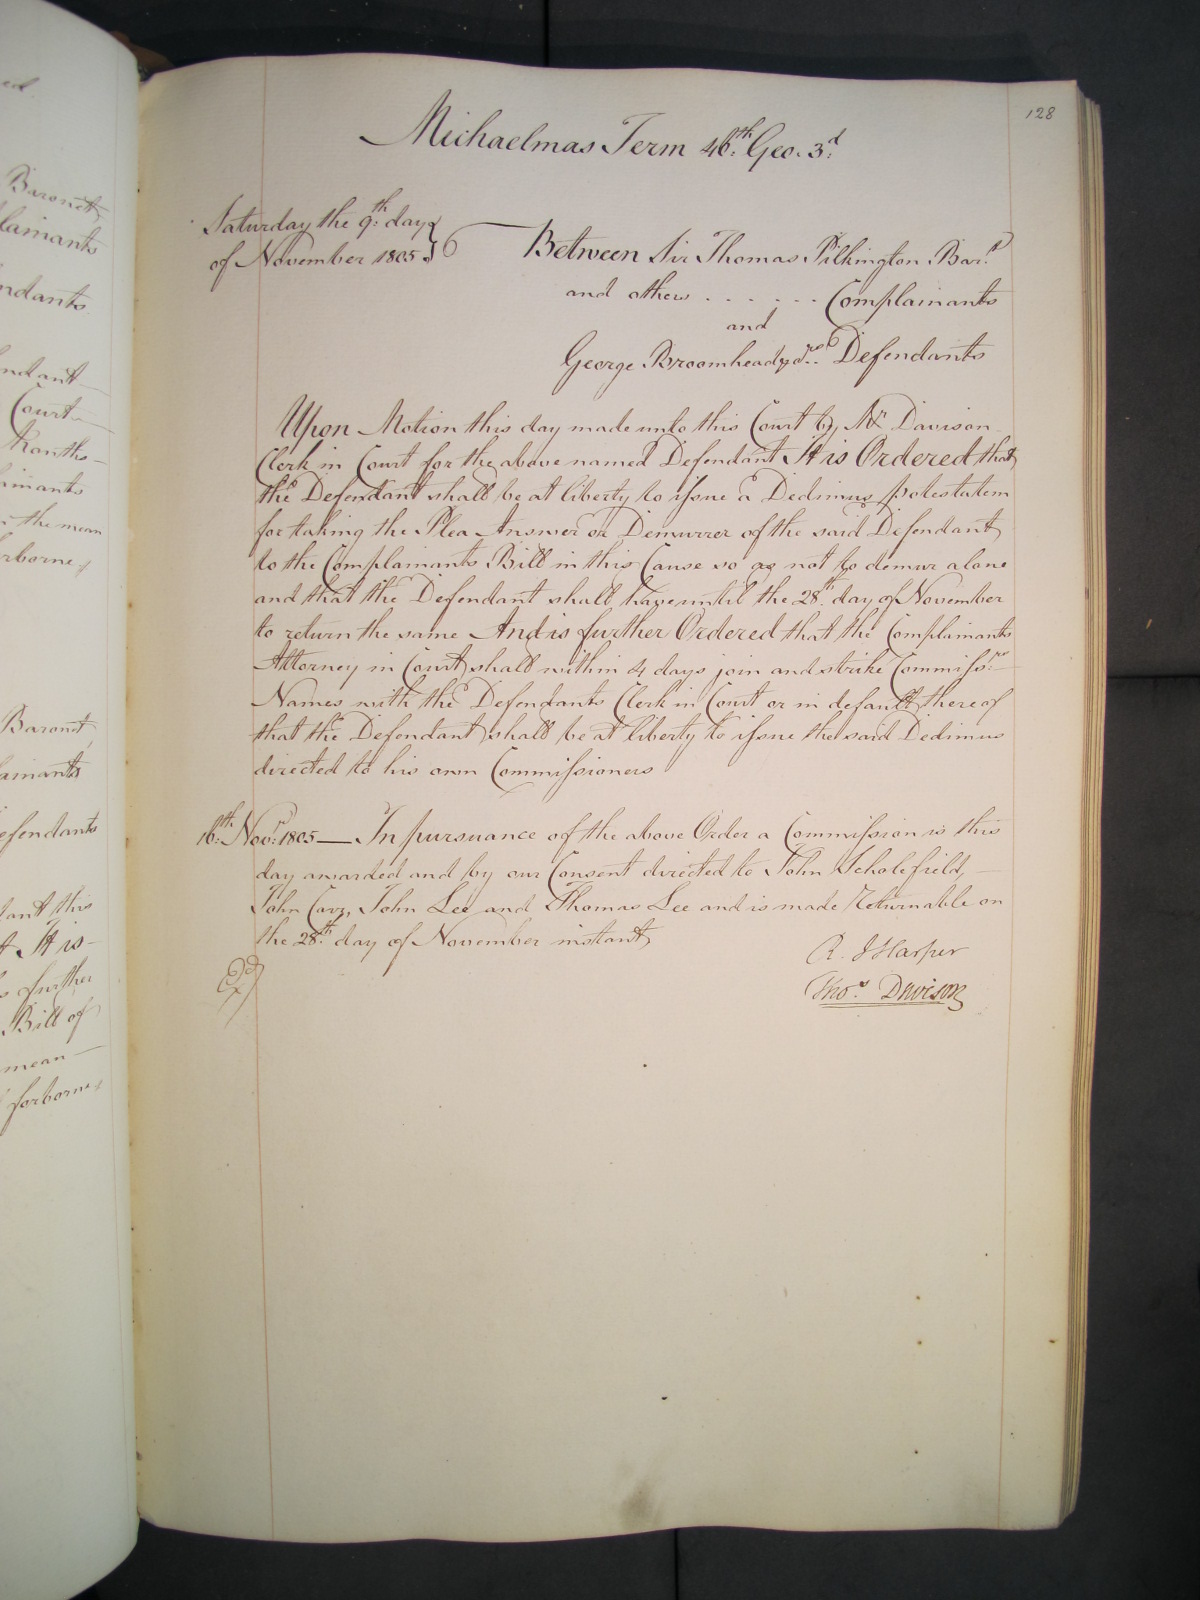 128
Michaelmas Term 46th. Geo. 3d.
Saturday the 9th. day
of November 1805.
Between Sir Thomas Pilkington Bart.
and others . . . . . . Complainants
and
George Broomhead Defendants
Upon Motion this day made unto this Court by Mr. Davison
Clerk in Court for the above named Defendant It is Ordered that
the Defendant shall be at liberty to issue a Dedimus potestatem
for taking the Plea Answer or Demurrer of the said Defendant
to the Complainants Bill in this Cause so as not to demur alone
and that the Defendant shall have until the 28th. day of November
to return the same And is further Ordered that the Complainants
Attorney in Court shall within 4 days join and strike Commissrs.
Names with the Defendants Clerk in Court or in default thereof
that the Defendant shall be at liberty to issue the said Dedimus
directed to his own Commissioners
16th. Novr. 1805 — In pursuance of the above Order a Commission is this
day awarded and by our Consent directed to John Scholefield,
John Carr, John Lee and Thomas Lee and is made Returnable on
the 28th. day of November instant
R. J Harper
Thos. Davison
Baronet
lainants
ndants
endant
Court
Months
ainants
the mean
rborne
Baronet
ainants
efendants
dant this
It is
further
Bill of
mean
forborne